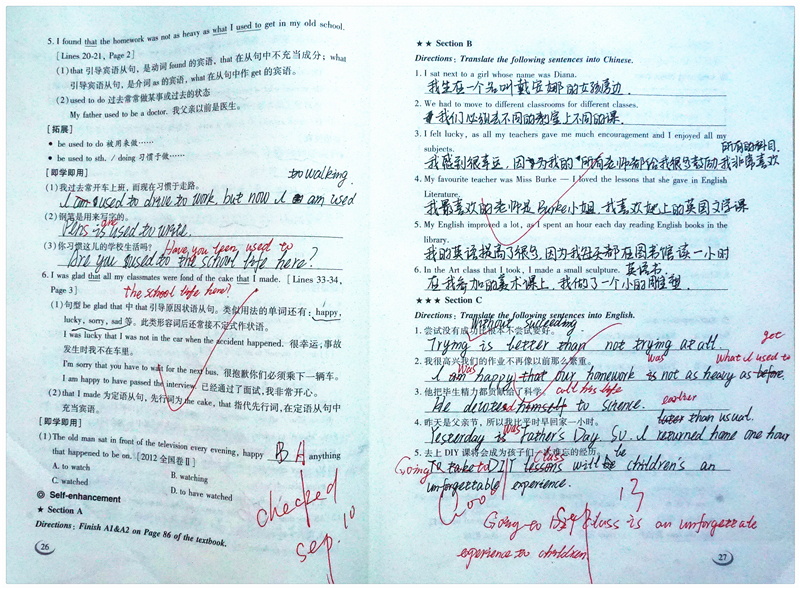 5. I found that the homework was not as heavy as what I used to get in my old school.
[Lines 20-21, Page 2]
(1) that 引导宾语从句，是动词 found 的宾语，that 在从句中不充当成分；what
引导宾语从句，是介词 as 的宾语，what 在从句中作 get 的宾语。
(2) used to do 过去常常做某事或过去的状态
My father used to be a doctor. 我父亲以前是医生。
[拓展]
● be used to do 被用来做……
● be used to sth. / doing 习惯于做……
[即学即用]
to walking.
(1) 我过去常开车上班，而现在习惯于走路。
I am used to drive to work, but now I am used
(2) 钢笔是用来写字的。
are
Pens is used to write.
(3) 你习惯这儿的学校生活吗？ Have you been used to
Are you used to the school life here?
6. I was glad that all my classmates were fond of the cake that I made. [Lines 33-34,
Page 3] the school life here?
(1) 句型 be glad that 中 that 引导原因状语从句。类似用法的单词还有：happy,
lucky, sorry, sad 等。此类形容词后还常接不定式作状语。
I was lucky that I was not in the car when the accident happened. 很幸运，事故
发生时我不在车里。
I'm sorry that you have to wait for the next bus. 很抱歉你们必须乘下一辆车。
I am happy to have passed the interview. 已经通过了面试，我非常开心。
(2) that I made 为定语从句，先行词为 the cake, that 指代先行词，在定语从句中
充当宾语。
[即学即用]
The old man sat in front of the television every evening, happy B A anything
that happened to be on. [2012 全国卷Ⅱ]
A. to watch B. watching
C. watched D. to have watched
checked
Sep. 10
◎ Self-enhancement
★ Section A
Directions: Finish A1&A2 on Page 86 of the textbook.
26
★★ Section B
Directions: Translate the following sentences into Chinese.
1. I sat next to a girl whose name was Diana.
我坐在一个名叫戴安娜的女孩旁边.
2. We had to move to different classrooms for different classes.
我们必须去不同的教室上不同的课.
3. I felt lucky, as all my teachers gave me much encouragement and I enjoyed all my
subjects. 所有的科目.
我感到很幸运, 因为我的所有老师都给我很多鼓励我非常喜欢
4. My favourite teacher was Miss Burke — I loved the lessons that she gave in English
Literature.
我最喜欢的老师是Burke小姐, 我喜欢她上的英国文学课
5. My English improved a lot, as I spent an hour each day reading English books in the
library.
我的英语提高了很多, 因为我每天都在图书馆读一小时
6. In the Art class that I took, I made a small sculpture. 英语书.
在我参加的美术课上, 我做了一个小的雕塑.
★★★ Section C
Directions: Translate the following sentences into English.
1. 尝试没有成功比根本不尝试要好。
without succeeding
Trying is better than not trying at all.
2. 我很高兴我们的作业不再像以前那么繁重。
was was what I used to get
I am happy that our homework is not as heavy as before.
3. 他把毕生精力都贡献给了科学。
all his life
He devoted himself to science.
4. 昨天是父亲节，所以我比平时早回家一小时。
earlier
later than usual.
was
Yesterday is Father's Day. So. I returned home one hour
5. 去上 DIY 课将会成为孩子们一次难忘的经历。
Going class be
To take to DIY lessons will be children's an
unforgettable experience.
Good
13
Going to DIY class is an unforgettable
experience to children
27